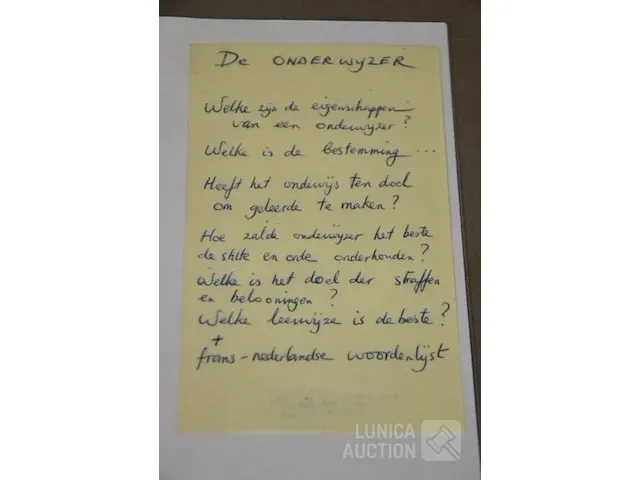 De ONDERWYZER
Welke zijn de eigenschappen
van een onderwijzer?
Welke is de Bestemming ...
Heeft het onderwijs ten doel
om geleerde te maken?
Hoe zal de onderwijzer het beste
de stilte en orde onderhouden?
Welke is het doel der straffen
en belooningen?
Welke leerwijze is de beste?
+
frans - nederlandse woordenlijst
LUNICA
AUCTION